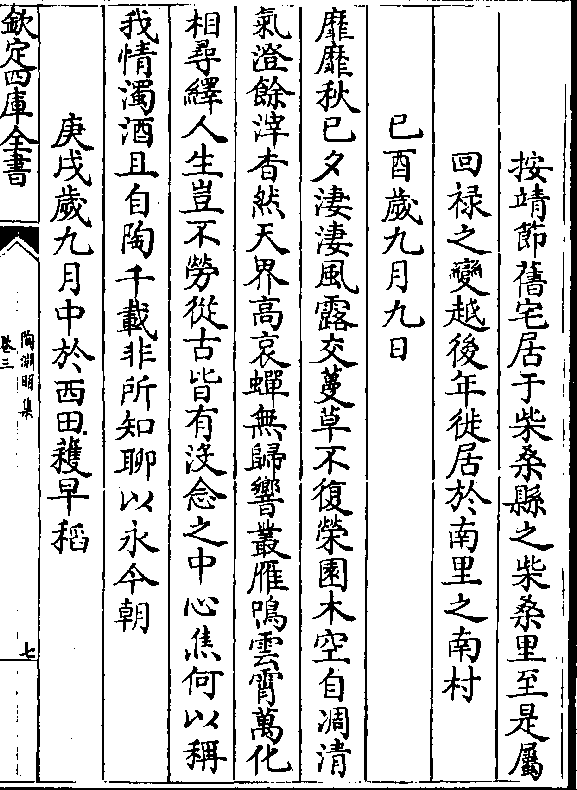 按靖節舊宅居于柴桑縣之柴桑里至是屬
回禄之變越後年徙居於南里之南村
已酉歲九月九日
靡靡秋已夕淒淒風露交蔓草不復榮園木空自凋清
氣澄餘滓杳然天界高哀蟬無歸響叢雁鳴雲霄萬化
相尋繹人生豈不勞從古皆有沒念之中心焦何以稱
我情濁酒且自陶千載非所知聊以永今朝
庚戌歲九月中於西田穫早稻
欽定四庫全書
陶淵明集
卷三
七